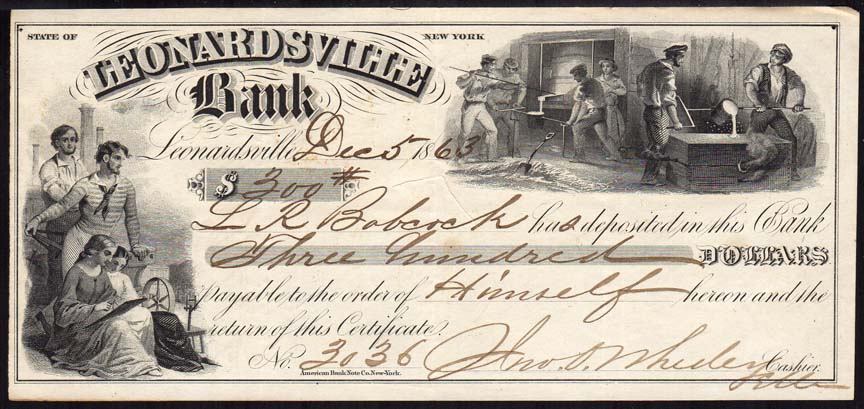 STATE OF NEW YORK
LEONARDSVILLE
Bank
Leonardsville, Dec 5 1863
$ 300 #
L R Babcock has deposited in this Bank
Three hundred DOLLARS
payable to the order of Himself hereon and the
return of this Certificate.
No. 3036 Jno. O. Wheeler Cashier.
American Bank Note Co. New-York.